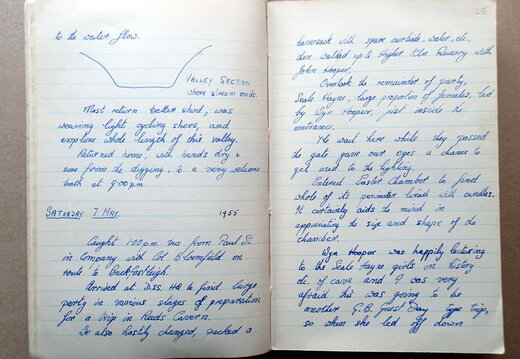 to the water flow.
VALLEY SECTION
where stream ends.
Must return better shod, was
wearing light cycling shoes, and
explore whole length of this valley.
Returned home, with hands dry &
sore from the digging, to a very welcome
bath at 9.00 p.m.
SATURDAY 7 MAY. 1955
Caught 1.00 p.m. bus from Paul St.
in company with Col Bloomfield on
route to Buckfastleigh.
Arrived at D.S.S. HQ to find large
party in various stages of preparation
for a trip in Reeds Cavern.
So also hastily changed, packed a
25
haversack with spare carbide, water, etc,
then walked up to Higher Kiln Quarry with
John Hooper.
Overtook the remainder of party,
Seale Hayne, large proportion of females, led
by Wyn Hooper, just inside the
entrance.
The wait here while they passed
the gate gave our eyes a chance to
get used to the lighting.
Entered Easter Chamber to find
whole of its perimeter lined with candles.
It certainly aids the mind in
appreciating the size and shape of the
chamber.
Wyn Hooper was happily lecturing
to the Seale Hayne girls on history
etc. of cave and I was very
afraid this was going to be
another G.B. first Day type trip,
so when she led off down